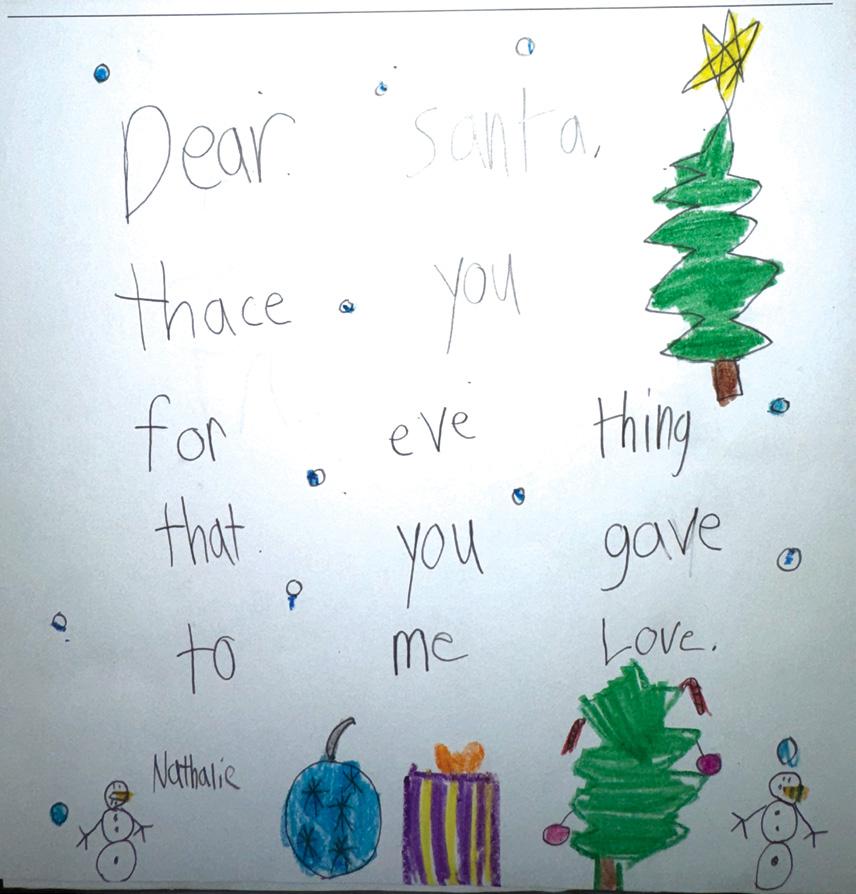 Dear santa,
thace you
for eve thing
that you gave
to me Love.
Nathalie